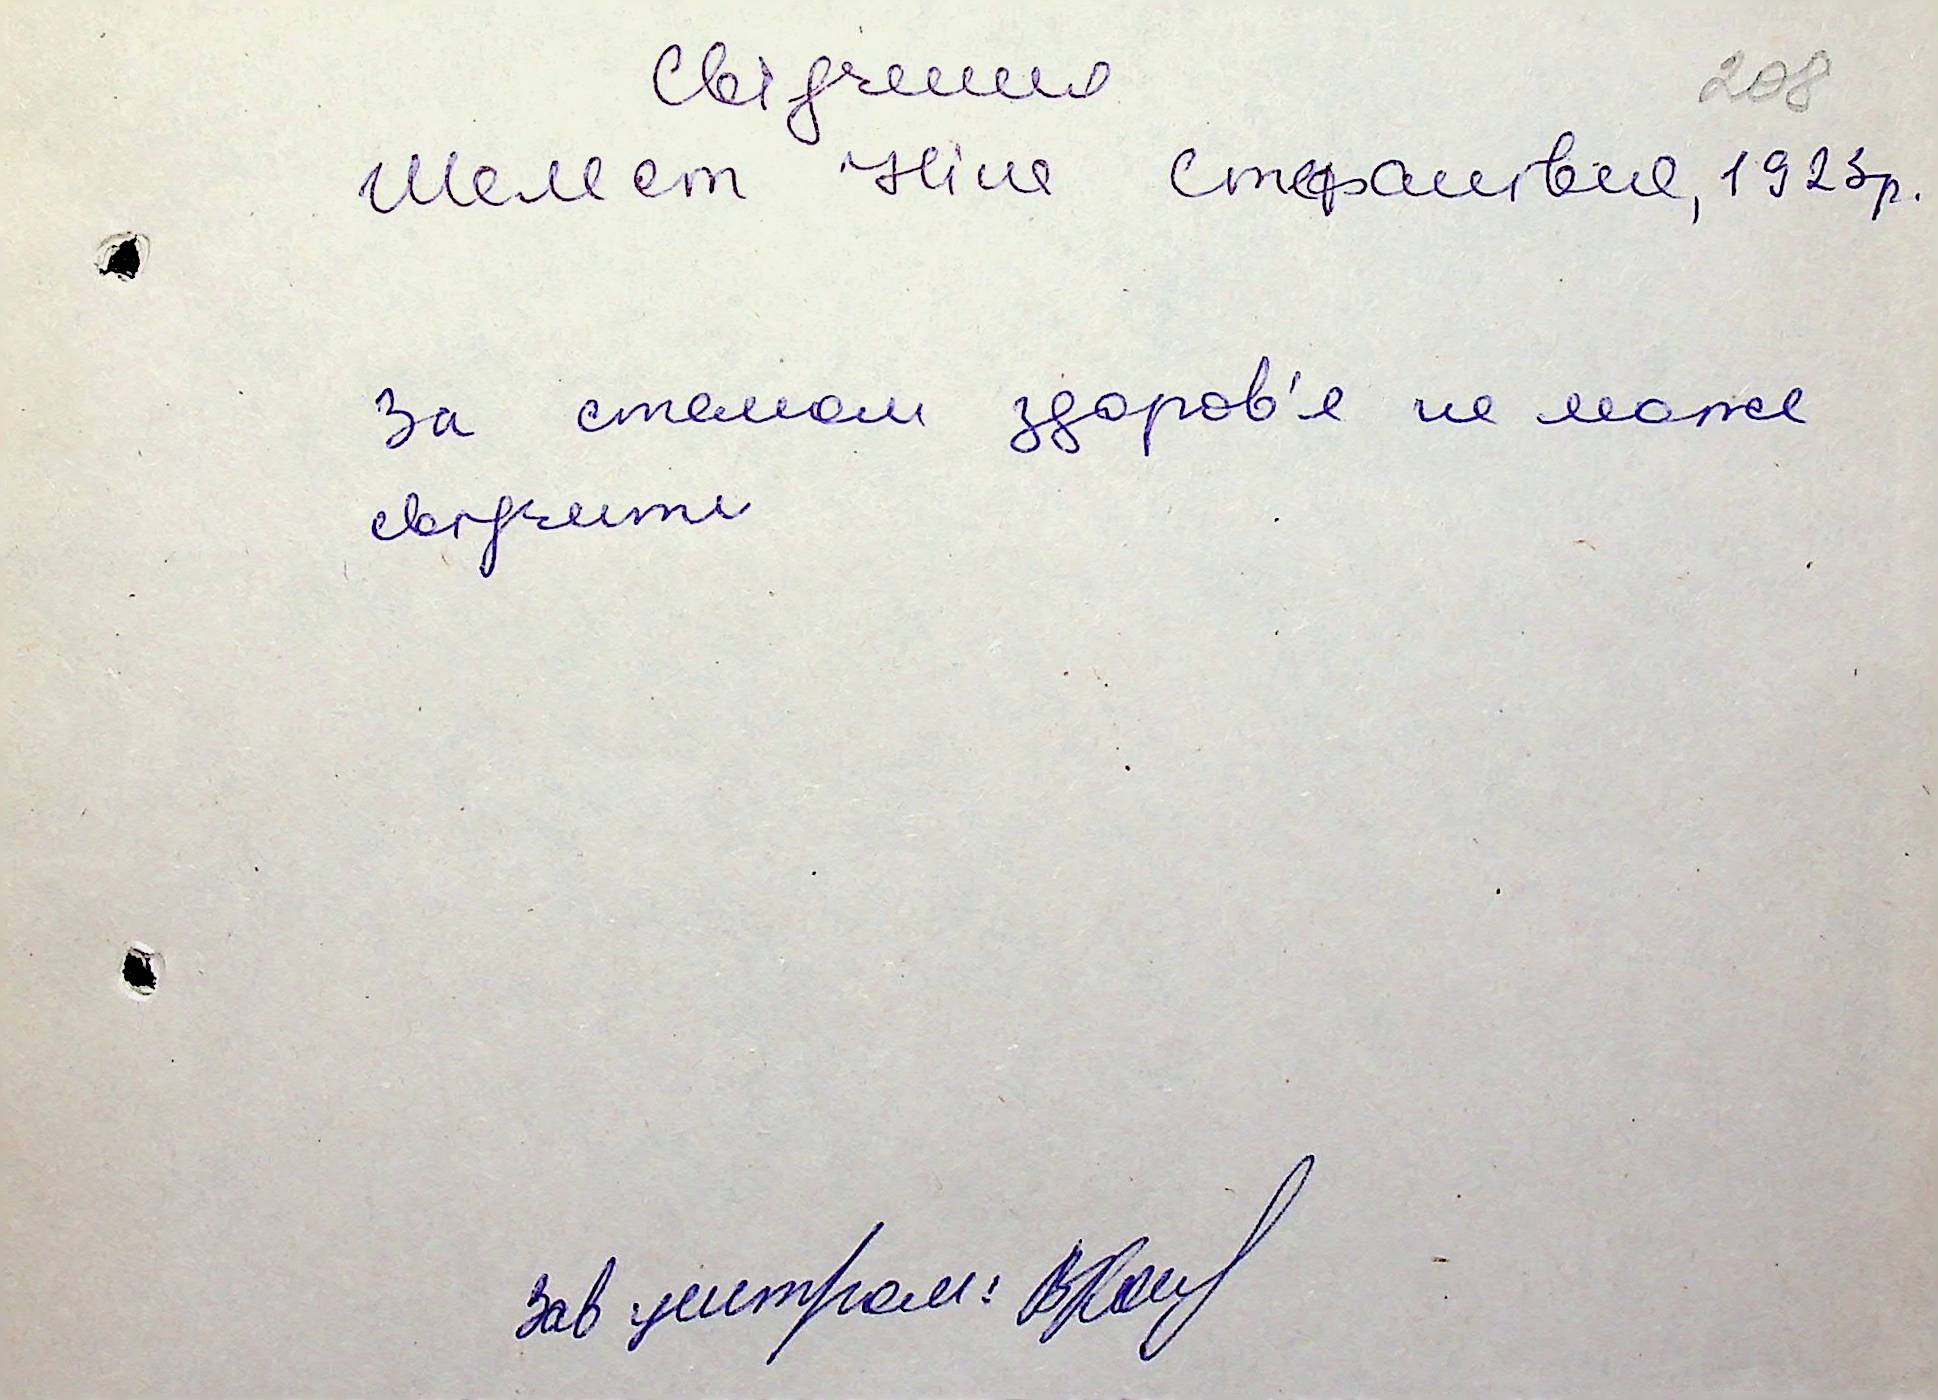 Свідчення
208
Шелест Ніна Стефанівна, 1923р.
За станом здоров'я не може
свідчити
Зав центром: